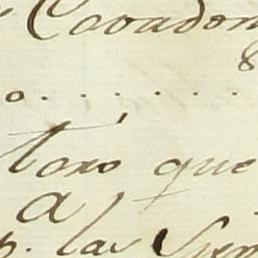 Covadon
8
o. . . . . .
toro que
a
p. las Siem